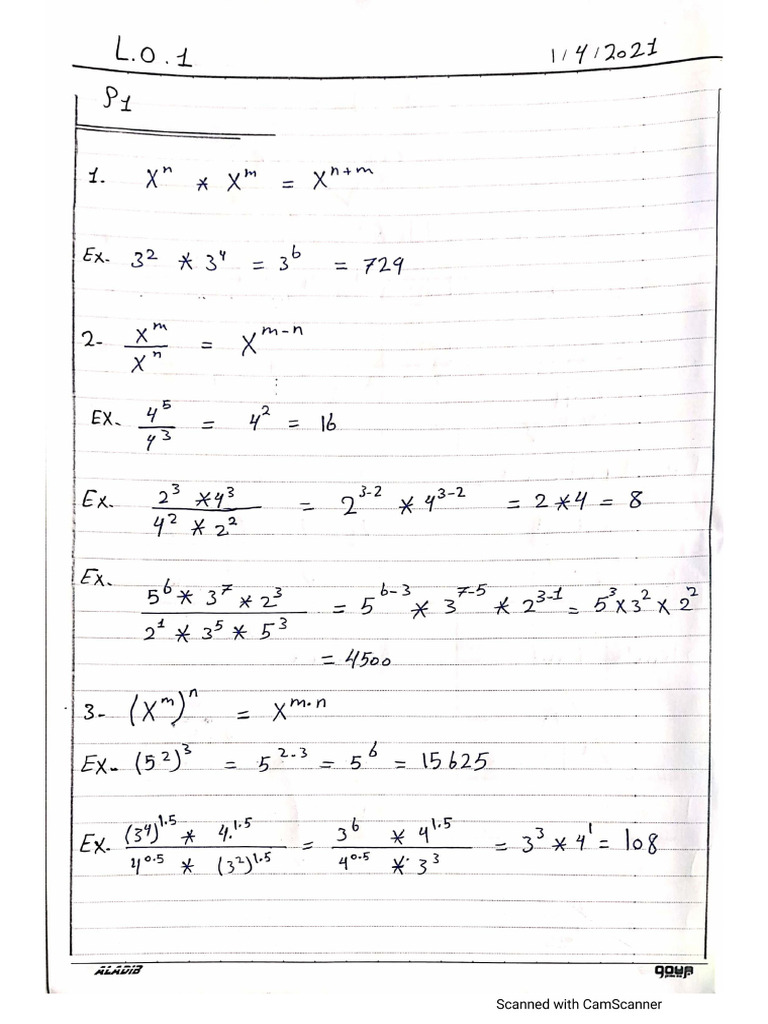 L.O.1 1/4/2021
P1
1. Xⁿ * Xᵐ = Xⁿ⁺ᵐ
Ex. 3² * 3⁴ = 3⁶ = 729
2- Xᵐ/Xⁿ = Xᵐ⁻ⁿ
EX. 4⁵/4³ = 4² = 16
Ex. (2³ * 4³)/(4² * 2²) = 2³⁻² * 4³⁻² = 2 * 4 = 8
Ex. (5⁶ * 3⁷ * 2³)/(2¹ * 3⁵ * 5³) = 5⁶⁻³ * 3⁷⁻⁵ * 2³⁻¹ = 5³ x 3² x 2²
= 4500
3- (Xᵐ)ⁿ = X^(m·n)
EX- (5²)³ = 5^(2·3) = 5⁶ = 15625
Ex. ((3⁴)^1.5 * 4^1.5)/(4^0.5 * (3²)^1.5) = (3⁶ * 4^1.5)/(4^0.5 * 3³) = 3³ * 4¹ = 108
ALADIB
Scanned with CamScanner